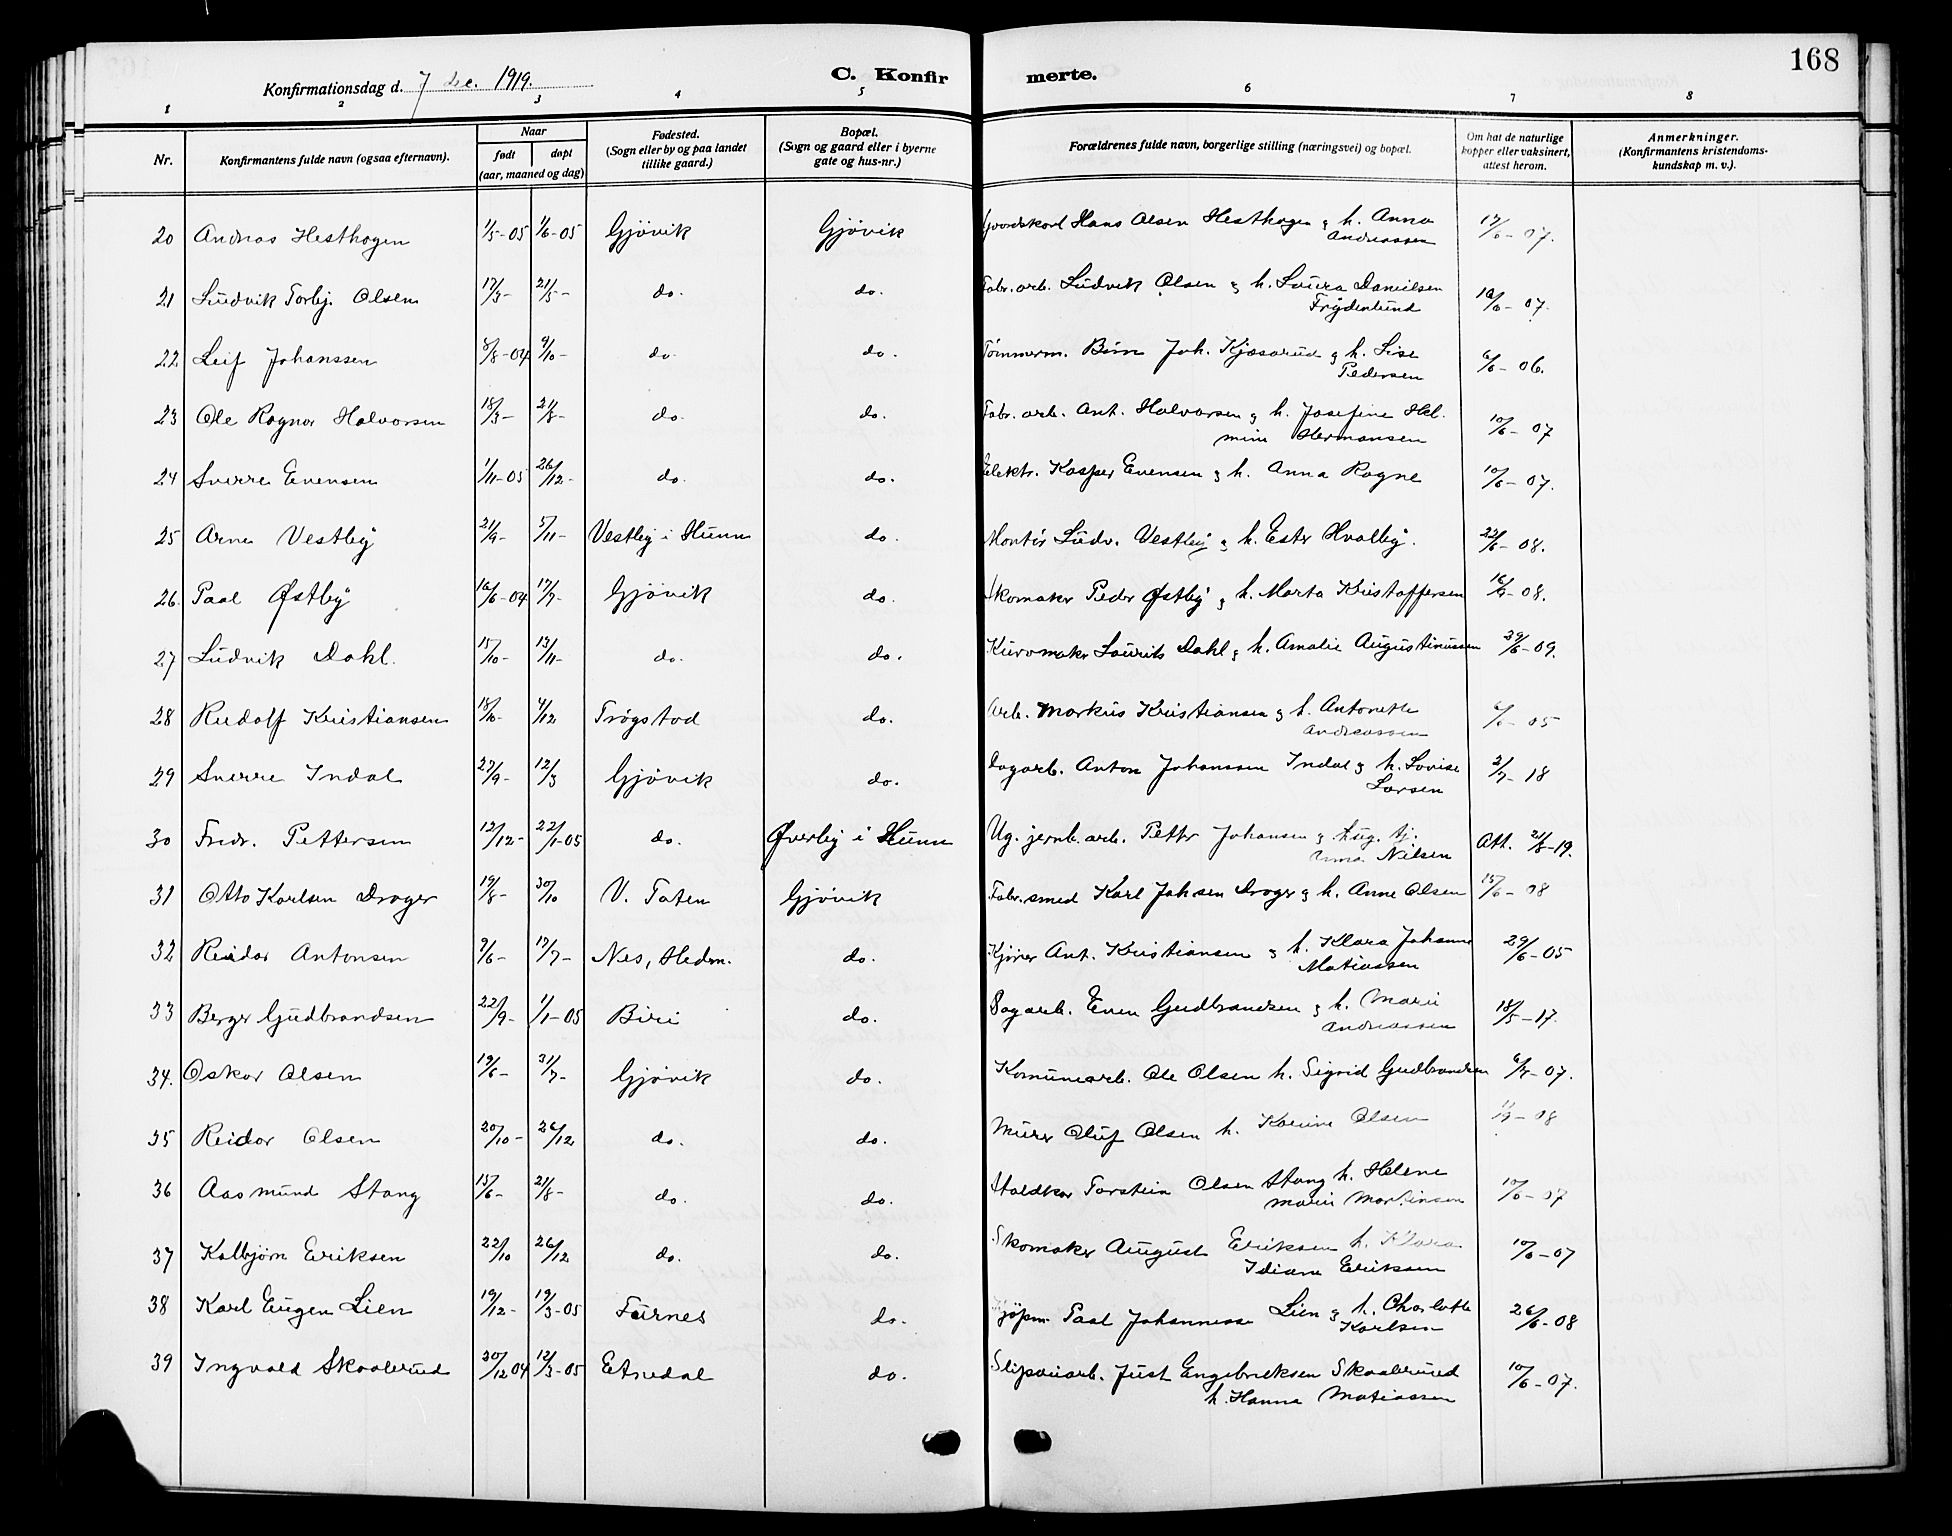 168
Konfirmationsdag d. 7 dec. 1919.
C. Konfirmerte.
1 2 3 4 5 6 7 8
Nr. Konfirmantens fulde navn (ogsaa efternavn). Naar født døpt (aar, maaned og dag) Fødested. (Sogn eller by og paa landet tillike gaard.) Bopæl. (Sogn og gaard eller i byerne gate og hus-nr.) Forældrenes fulde navn, borgerlige stilling (næringsvei) og bopæl. Om hat de naturlige kopper eller vaksinert, attest herom. Anmerkninger. (Konfirmantens kristendomskundskap m. v.).
20 Andreas Hesthagen 1/5-05 1/6-05 Gjövik Gjövik Gaardskarl Hans Olsen Hesthagen & h. Anna 17/6-07.
Andreassen
21 Ludvik Torbj. Olsen 17/3- 21/5- do. do. Fabr. arb. Ludvik Olsen & h. Laura Danielsen 10/6-07.
Frydenlund
22 Leif Johanssen 8/8-04 9/10- do. do. Tömmerm. Joh. Kjæsarud & h. Lise 6/6-06.
Pedersen
23 Ole Ragnar Halvorsen 18/3- 21/8- do. do. Fabr. arb. Ant. Halvorsen & h. Josefine Hel- 10/6-07
mine Hermansen
24 Sverre Evensen 1/11-05 26/12- do. do. Elektr. Kasper Evensen & h. Anna Rogne 10/6-07.
25 Arne Vestby 21/9- 5/11- Vestby i Hunn do. Montör Ludv. Vestby & h. Ester Hvalby. 22/6-08.
26. Paal Østby 16/6-04 17/7- Gjövik do. Skomaker Peder Østby & h. Marta Kristoffersen 16/7-08.
27 Ludvik Dahl. 15/10- 13/11- do. do. Kurvmaker Laurits Dahl & h. Amalie Augustinussen 29/6-09.
28 Rudolf Kristiansen 18/10- 4/12 Trögstad do. Arb. Markus Kristiansen & h. Antonette 6/6-05
Andreassen
29 Sverre Indal 27/9- 12/3 Gjövik do. Dagarb. Anton Johanssen Indal & h. Lovise 2/7-18
Larsen
30 Fredr. Pettersen 12/12- 22/1-05 do. Øverby i Hunn Ug. jernb. arb. Petter Johansen & tj. Att. 21/8-19.
Anna Nilsen
31 Otto Karlsen Drager 19/8- 30/10 V. Toten Gjövik Fabr. smed Karl Johsen Drager & h. Anne Olsen 15/6-08
32 Reidar Antonsen 9/6- 17/7- Nes, Hedm. do. Kjörer Ant. Kristiansen & h. Klara Johanne 29/6-05
Matiassen
33 Berger Gudbrandsen 22/9- 1/1-05 Biri do. Dagarb. Even Gudbrandsen & h. Marie 18/5-17.
Andreassen
34. Oskar Olsen 19/6- 31/7- Gjövik do. Komunearb. Ole Olsen h. Sigrid Gudbrandsen 6/7-07.
35 Reidar Olsen 20/10- 26/12 do. do. Murer Oluf Olsen h. Karine Olsen -08
36 Aasmund Stang 15/6- 21/8- do. do. Staldkar Torstein Olsen Stang h. Helene 10/6-07
Marie Martinsen
37 Kolbjørn Eriksen 22/10 26/12 do. do. Skomaker August Eriksen h. Klara 10/6-07
Idiane Eriksen
38 Karl Eugen Lien 19/12- 19/3-05 Furnes do. Kjöpm. Paal Johannesse Lien & h. Charlotte 26/6-08
Karlsen
39 Ingvald Skaalerud 20/12 04 12/3-05 Etnedal do. Sliperiarb. Just Engebretksen Skaalerud 10/6-07.
h. Hanna Matiassen